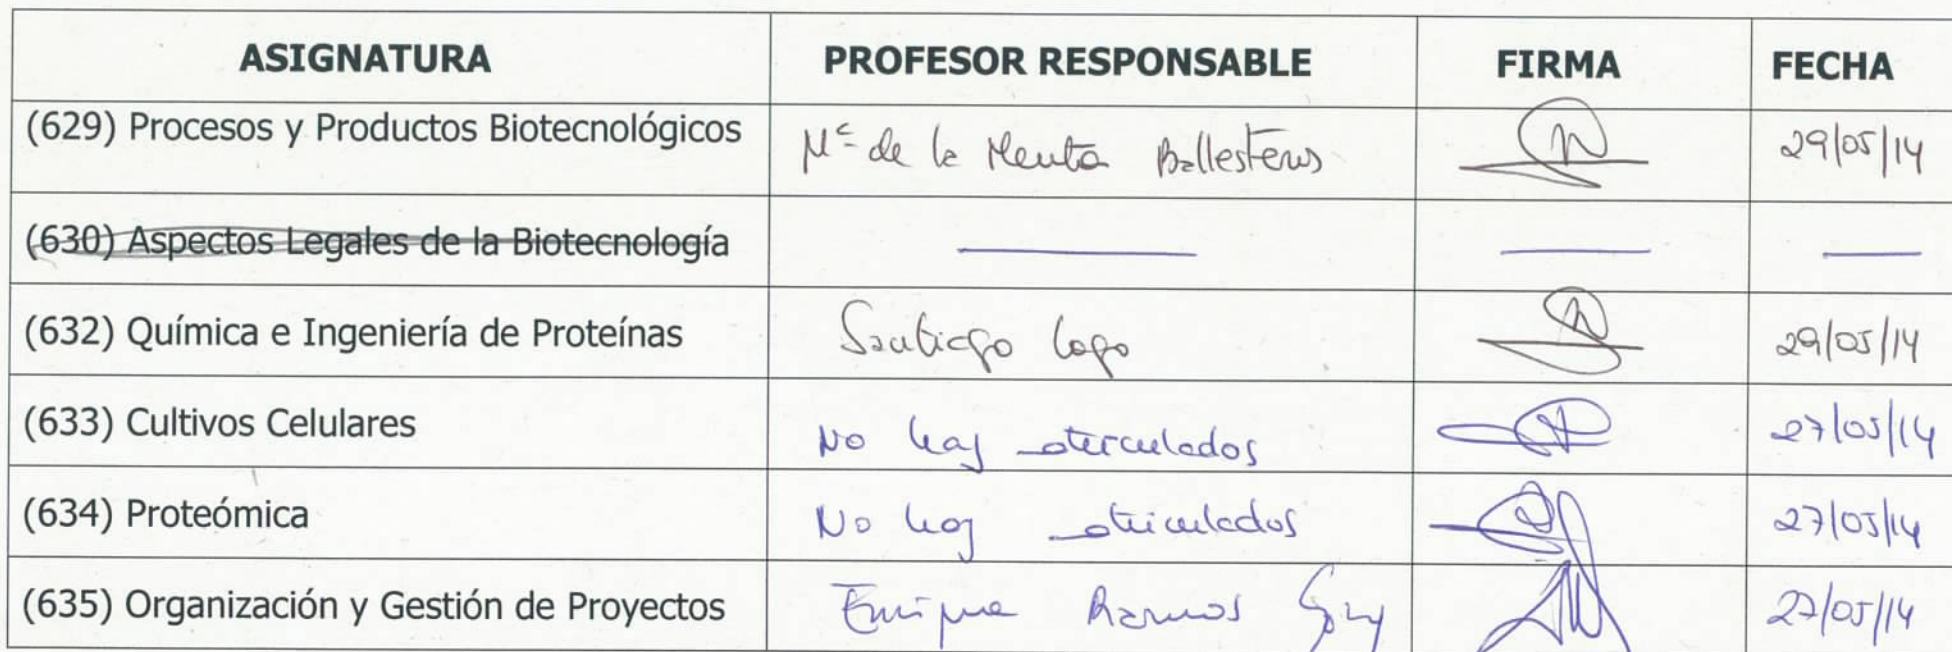 ASIGNATURA PROFESOR RESPONSABLE FIRMA FECHA
(629) Procesos y Productos Biotecnológicos Mª de la Menta Ballesteros 29/05/14
(630) Aspectos Legales de la Biotecnología
(632) Química e Ingeniería de Proteínas Santiago Lago 29/05/14
(633) Cultivos Celulares No hay 27/05/14
(634) Proteómica No hay 27/05/14
(635) Organización y Gestión de Proyectos Enrique Ramos 27/05/14